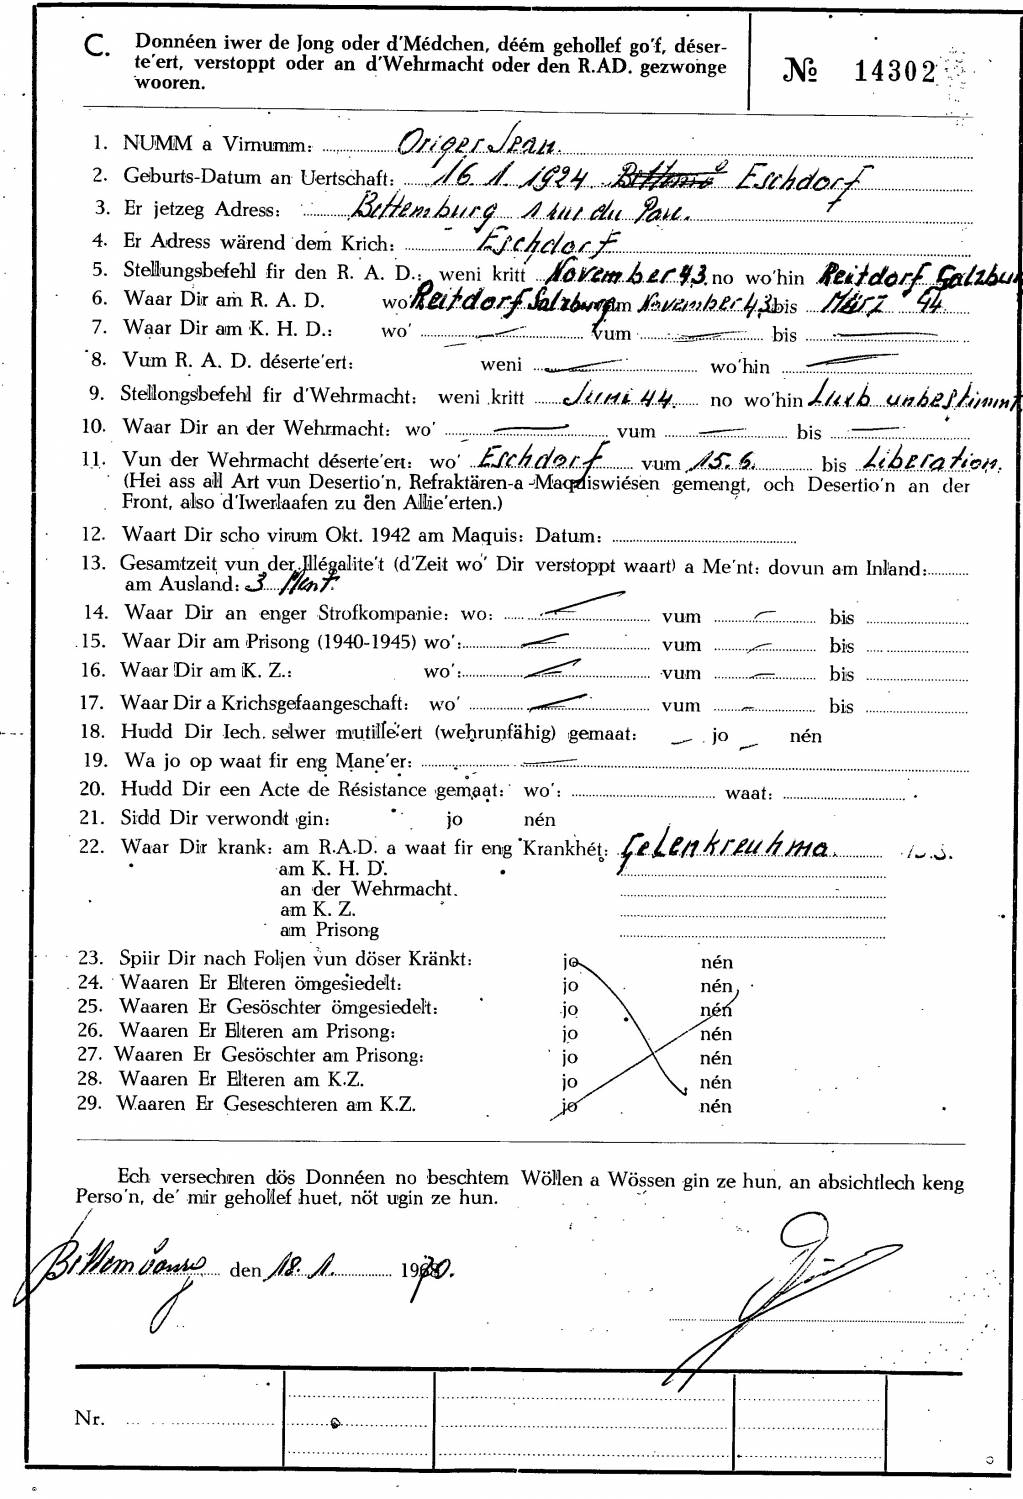 C. Donnéen iwer de Jong oder d'Médchen, déém gehollef go'f, déser-
te'ert, verstoppt oder an d'Wehrmacht oder den R.AD. gezwonge
wooren.
№ 14302
1. NUMM a Virnumm: Origer Jean.
2. Geburts-Datum an Uertschaft: 16. 1. 1924 Eschdorf
3. Er jetzeg Adress: Bettemburg 1 rue du Parc.
4. Er Adress wärend dem Krich: Eschdorf
5. Stellungsbefehl fir den R. A. D.: weni kritt November 43. no wo'hin Reitdorf Salzburg
6. Waar Dir am R. A. D. wo' Reitdorf Salzburg vum November 43. bis März 44.
7. Waar Dir am K. H. D.: wo' vum bis
8. Vum R. A. D. déserte'ert: weni wo'hin
9. Stellongsbefehl fir d'Wehrmacht: weni kritt Juni 44. no wo'hin Luxb unbestimmt
10. Waar Dir an der Wehrmacht: wo' vum bis
11. Vun der Wehrmacht déserte'ert: wo' Eschdorf vum 15. 6. bis Liberation.
(Hei ass all Art vun Desertio'n, Refraktären-a -Maquiswiésen gemengt, och Desertio'n an der
Front, also d'Iwerlaafen zu den Allie'erten.)
12. Waart Dir scho virum Okt. 1942 am Maquis: Datum:
13. Gesamtzeit vun der Illégalite't (d'Zeit wo' Dir verstoppt waart) a Me'nt: dovun am Inland:
am Ausland: 3 Ment.
14. Waar Dir an enger Strofkompanie: wo: vum bis
15. Waar Dir am Prisong (1940-1945) wo': vum bis
16. Waar Dir am K. Z.: wo': vum bis
17. Waar Dir a Krichsgefaangeschaft: wo' vum bis
18. Hudd Dir Iech. selwer mutille'ert (wehrunfähig) gemaat: jo nén
19. Wa jo op waat fir eng Mane'er:
20. Hudd Dir een Acte de Résistance gemaat: wo': waat:
21. Sidd Dir verwondt gin: jo nén
22. Waar Dir krank: am R.A.D. a waat fir eng Krankhét: Gelenkreuhma.
am K. H. D.
an der Wehrmacht.
am K. Z.
am Prisong
23. Spiir Dir nach Foljen vun döser Kränkt: jo nén
24. Waaren Er Elteren ömgesiedelt: jo nén
25. Waaren Er Gesöschter ömgesiedelt: jo nén
26. Waaren Er Elteren am Prisong: jo nén
27. Waaren Er Gesöschter am Prisong: jo nén
28. Waaren Er Elteren am K.Z. jo nén
29. Waaren Er Geseschteren am K.Z. jo nén
Ech versechren dös Donnéen no beschtem Wöllen a Wössen gin ze hun, an absichtlech keng
Perso'n, de' mir gehollef huet, nöt ugin ze hun.
den 18. 1. 1970.
Nr.